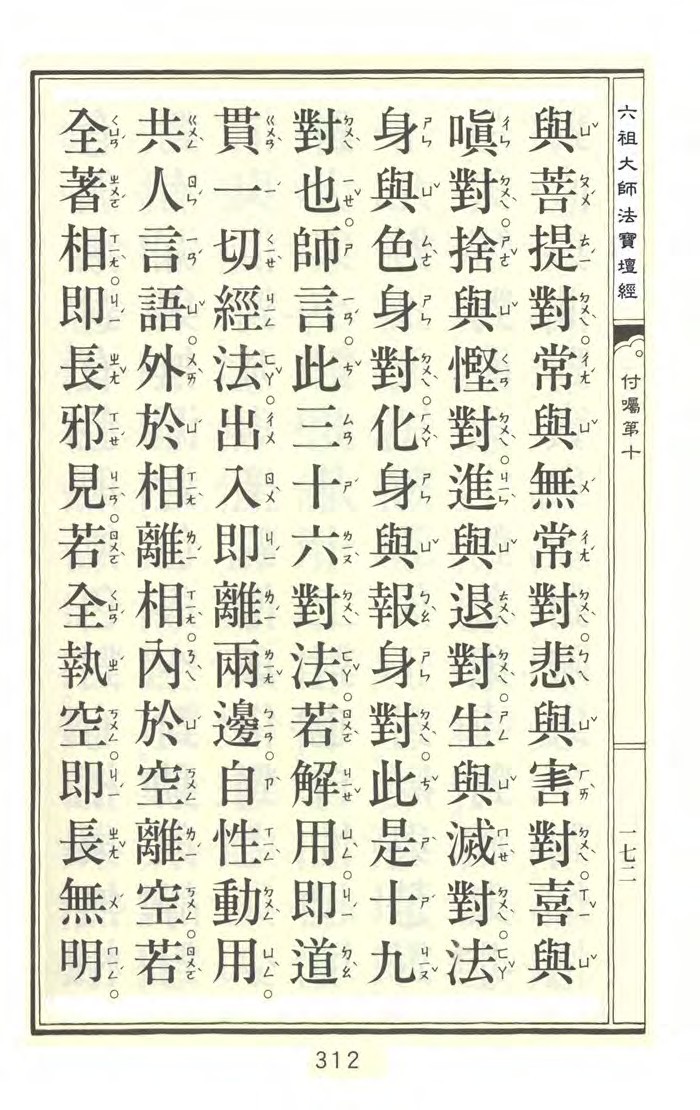 六祖大師法寶壇經 付囑第十 一七二
與菩提對。常與無常對。悲與害對。喜與
嗔對。捨與慳對。進與退對。生與滅對。法
身與色身對。化身與報身對。此是十九
對也。師言。此三十六對法。若解用。即道
貫一切經法。出入即離兩邊。自性動用。
共人言語。外於相離相。內於空離空。若
全著相。即長邪見。若全執空。即長無明。
312